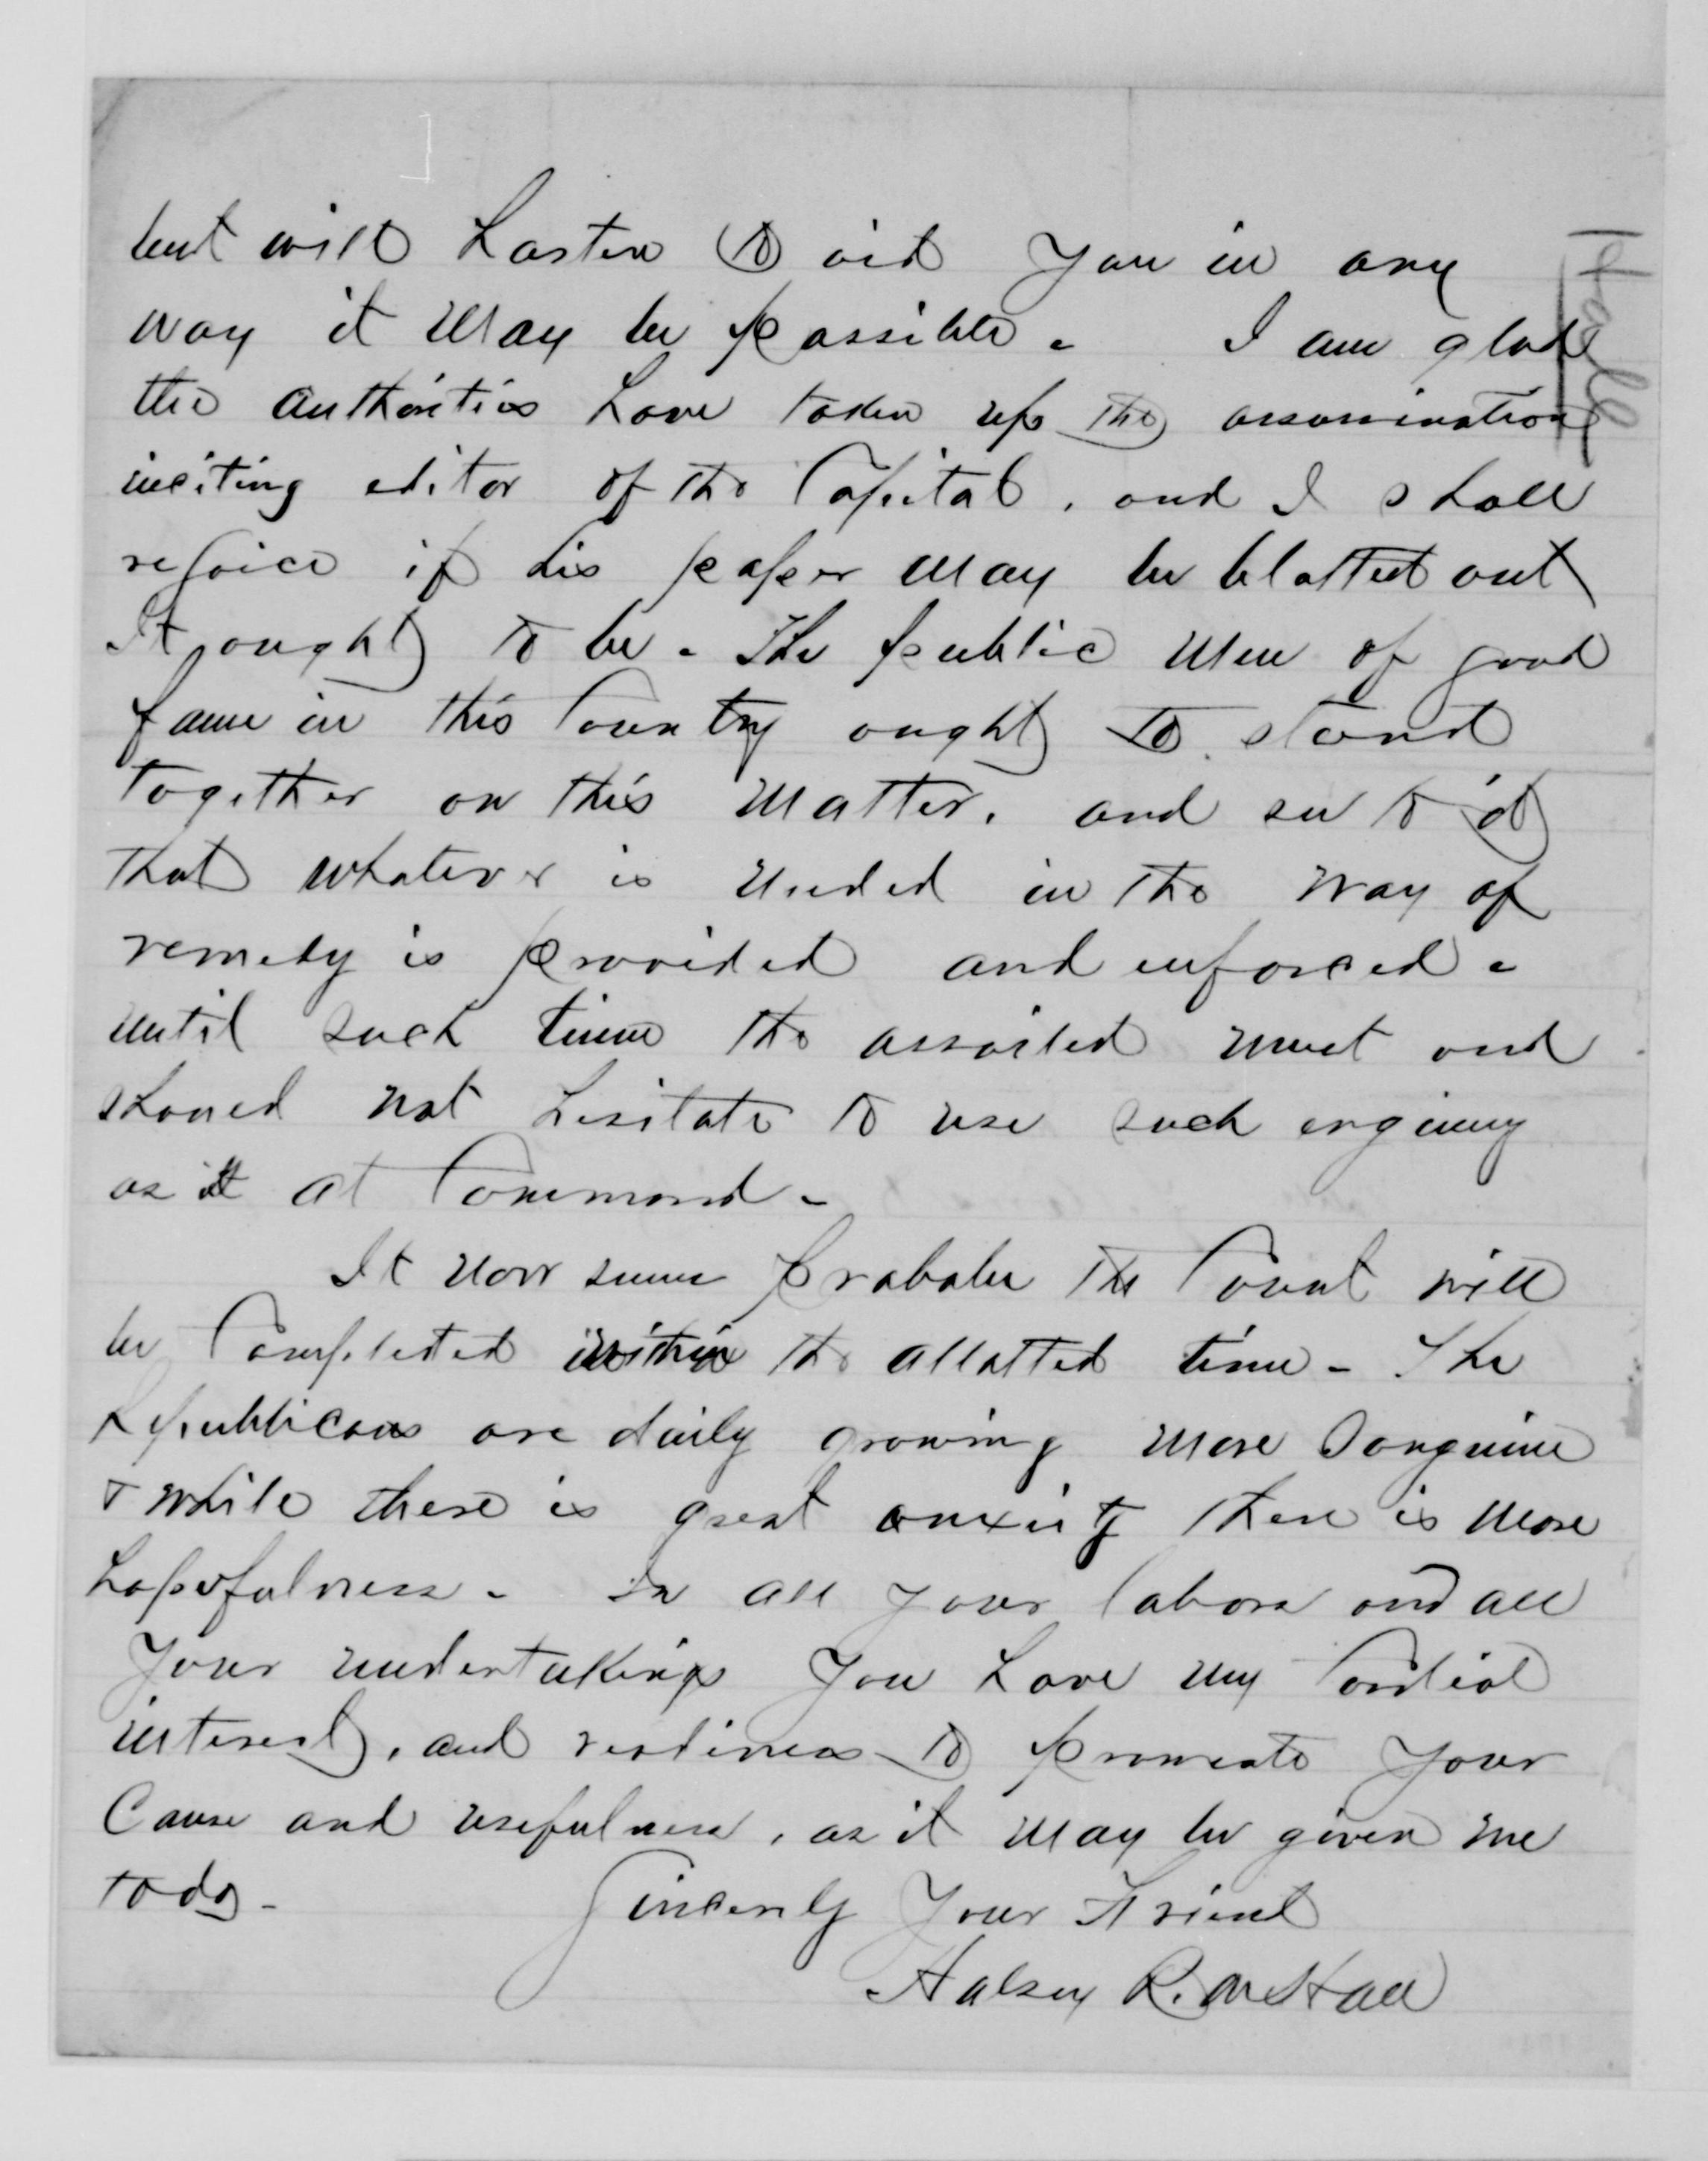 but will hasten to aid you in any
way it may be possible. I am glad
the authorities have taken up the assassination
inciting editor of the Capital, and I shall
rejoice if his paper may be blotted out
It ought to be. The public men of good
fame in this Country ought to stand
together on this matter, and see to it
that whatever is needed in the way of
remedy is provided and enforced.
until such time the assailed must and
should not hesitate to use such enginery
as is at Command.
It now seems probable the Count will
be Completed within the allotted time - The
Republicans are daily growing more sanguine
& while there is great anxiety there is more
hopefulness. In all your labors and all
your undertakings you have my Cordial
interest, and readiness to promote your
Cause and usefulness, as it may be given me
to do -
Sincerely Your Friend
Halsey R. W. Hall
Hall